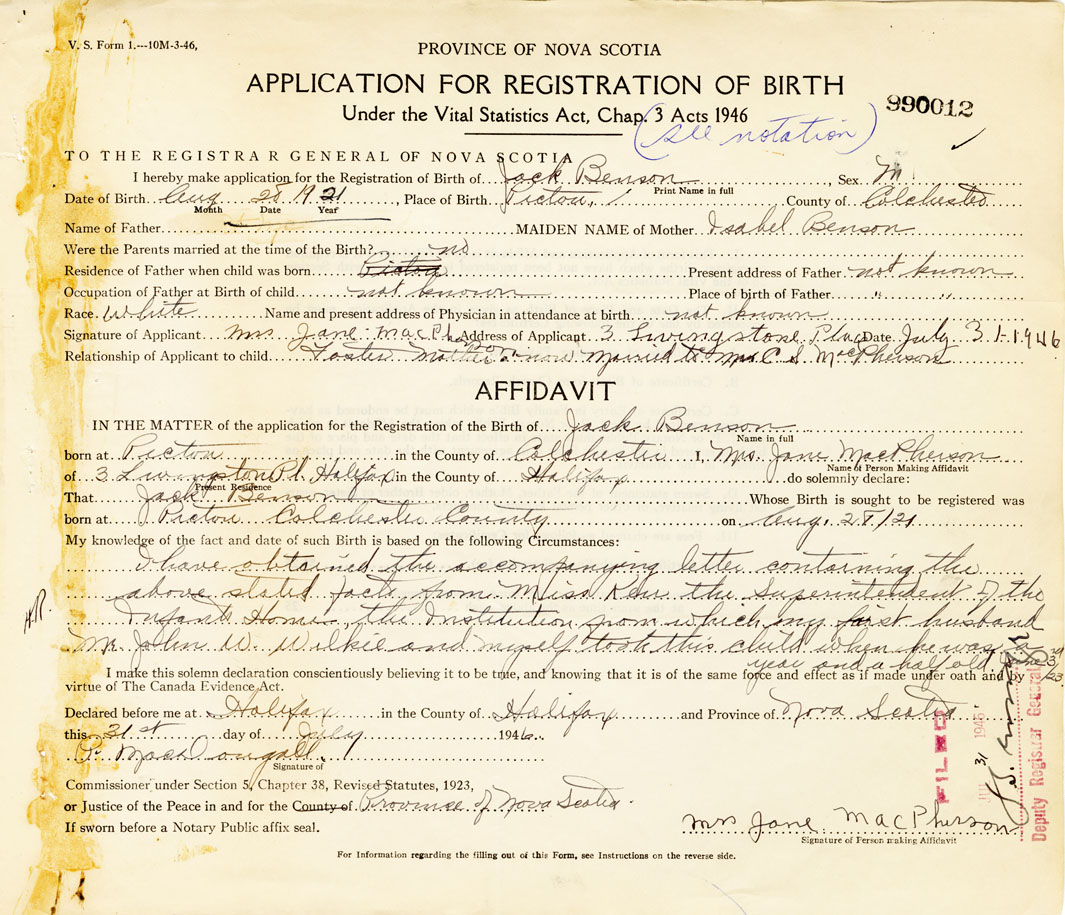 V. S. Form 1.---10M-3-46,
PROVINCE OF NOVA SCOTIA
APPLICATION FOR REGISTRATION OF BIRTH
990012
Under the Vital Statistics Act, Chap. 3 Acts 1946
(see notation)
TO THE REGISTRAR GENERAL OF NOVA SCOTIA
I hereby make application for the Registration of Birth of Jack Benson, Sex M
Print Name in full
Date of Birth Aug 28 1921, Place of Birth Picton, County of Colchester
Month Date Year
Name of Father MAIDEN NAME of Mother Isabel Benson
Were the Parents married at the time of the Birth? no
Residence of Father when child was born Picton Present address of Father not known
Occupation of Father at Birth of child not known Place of birth of Father " "
Race White Name and present address of Physician in attendance at birth not known
Signature of Applicant Mrs. Jane MacPherson Address of Applicant 3 Livingstone Place Date July 31-1946
Relationship of Applicant to child Foster Mother now married to Mr C S MacPherson
AFFIDAVIT
IN THE MATTER of the application for the Registration of the Birth of Jack Benson
Name in full
born at Picton in the County of Colchester I, Mrs. Jane MacPherson
Name of Person Making Affidavit
of 3 Livingstone Pl. Halifax in the County of Halifax do solemnly declare:
Present Residence
That Jack Benson Whose Birth is sought to be registered was
born at Picton Colchester County on Aug. 28/21
My knowledge of the fact and date of such Birth is based on the following Circumstances:
I have obtained the accompanying letter containing the
above stated facts from Miss the Superintendent of the
Infants Home, the Institution from which my first husband
Mr. John W. Wilkie and myself took this child when he was a
year and a half old
I make this solemn declaration conscientiously believing it to be true, and knowing that it is of the same force and effect as if made under oath and by
virtue of The Canada Evidence Act.
Declared before me at Halifax in the County of Halifax and Province of Nova Scotia
this 31st day of July 1946.
P. MacDougall
Signature of
Commissioner under Section 5, Chapter 38, Revised Statutes, 1923,
or Justice of the Peace in and for the County of Province of Nova Scotia.
If sworn before a Notary Public affix seal.
Mrs Jane MacPherson
Signature of Person making Affidavit
For Information regarding the filling out of this Form, see Instructions on the reverse side.
FILED
JUL 31 1946
Deputy Registrar General